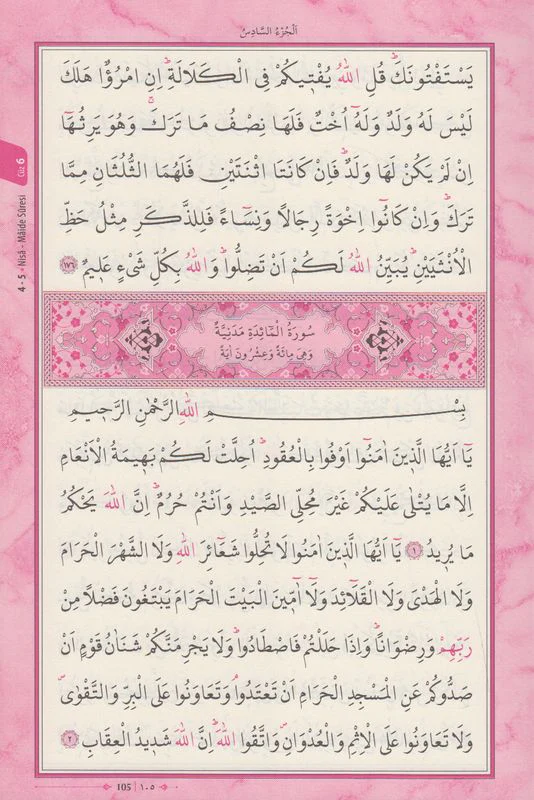 اَلْجُزْءُ السَّادِسُ
Cüz 6
4 - 5 • Nisâ - Mâide Sûresi
يَسْتَفْتُونَكَۜ قُلِ اللّٰهُ يُفْتٖيكُمْ فِى الْكَلَالَةِۜ اِنِ امْرُؤٌا هَلَكَ
لَيْسَ لَهُ وَلَدٌ وَلَهُٓ اُخْتٌ فَلَهَا نِصْفُ مَا تَرَكَۚ وَهُوَ يَرِثُهَٓا
اِنْ لَمْ يَكُنْ لَهَا وَلَدٌۜ فَاِنْ كَانَتَا اثْنَتَيْنِ فَلَهُمَا الثُّلُثَانِ مِمَّا
تَرَكَۜ وَاِنْ كَانُٓوا اِخْوَةً رِجَالًا وَنِسَٓاءً فَلِلذَّكَرِ مِثْلُ حَظِّ
الْاُنْثَيَيْنِۜ يُبَيِّنُ اللّٰهُ لَكُمْ اَنْ تَضِلُّواۜ وَاللّٰهُ بِكُلِّ شَىْءٍ عَلٖيمٌ ﴿١٧٦﴾
سُورَةُ الْمَٓائِدَةِ مَدَنِيَّةٌ
وَهِىَ مِائَةٌ وَعِشْرُونَ اٰيَةً
بِسْمِ اللّٰهِ الرَّحْمٰنِ الرَّحٖيمِ
يَٓا اَيُّهَا الَّذٖينَ اٰمَنُٓوا اَوْفُوا بِالْعُقُودِۜ اُحِلَّتْ لَكُمْ بَهٖيمَةُ الْاَنْعَامِ
اِلَّا مَا يُتْلٰى عَلَيْكُمْ غَيْرَ مُحِلِّى الصَّيْدِ وَاَنْتُمْ حُرُمٌۜ اِنَّ اللّٰهَ يَحْكُمُ
مَا يُرٖيدُ ﴿١﴾ يَٓا اَيُّهَا الَّذٖينَ اٰمَنُوا لَا تُحِلُّوا شَعَٓائِرَ اللّٰهِ وَلَا الشَّهْرَ الْحَرَامَ
وَلَا الْهَدْىَ وَلَا الْقَلَٓائِدَ وَلَٓا آٰمّٖينَ الْبَيْتَ الْحَرَامَ يَبْتَغُونَ فَضْلًا مِنْ
رَبِّهِمْ وَرِضْوَانًاۜ وَاِذَا حَلَلْتُمْ فَاصْطَادُواۜ وَلَا يَجْرِمَنَّكُمْ شَنَاٰنُ قَوْمٍ اَنْ
صَدُّوكُمْ عَنِ الْمَسْجِدِ الْحَرَامِ اَنْ تَعْتَدُواۢ وَتَعَاوَنُوا عَلَى الْبِرِّ وَالتَّقْوٰىۖ
وَلَا تَعَاوَنُوا عَلَى الْاِثْمِ وَالْعُدْوَانِۖ وَاتَّقُوا اللّٰهَۜ اِنَّ اللّٰهَ شَدٖيدُ الْعِقَابِ ﴿٢﴾
105 | ١٠٥